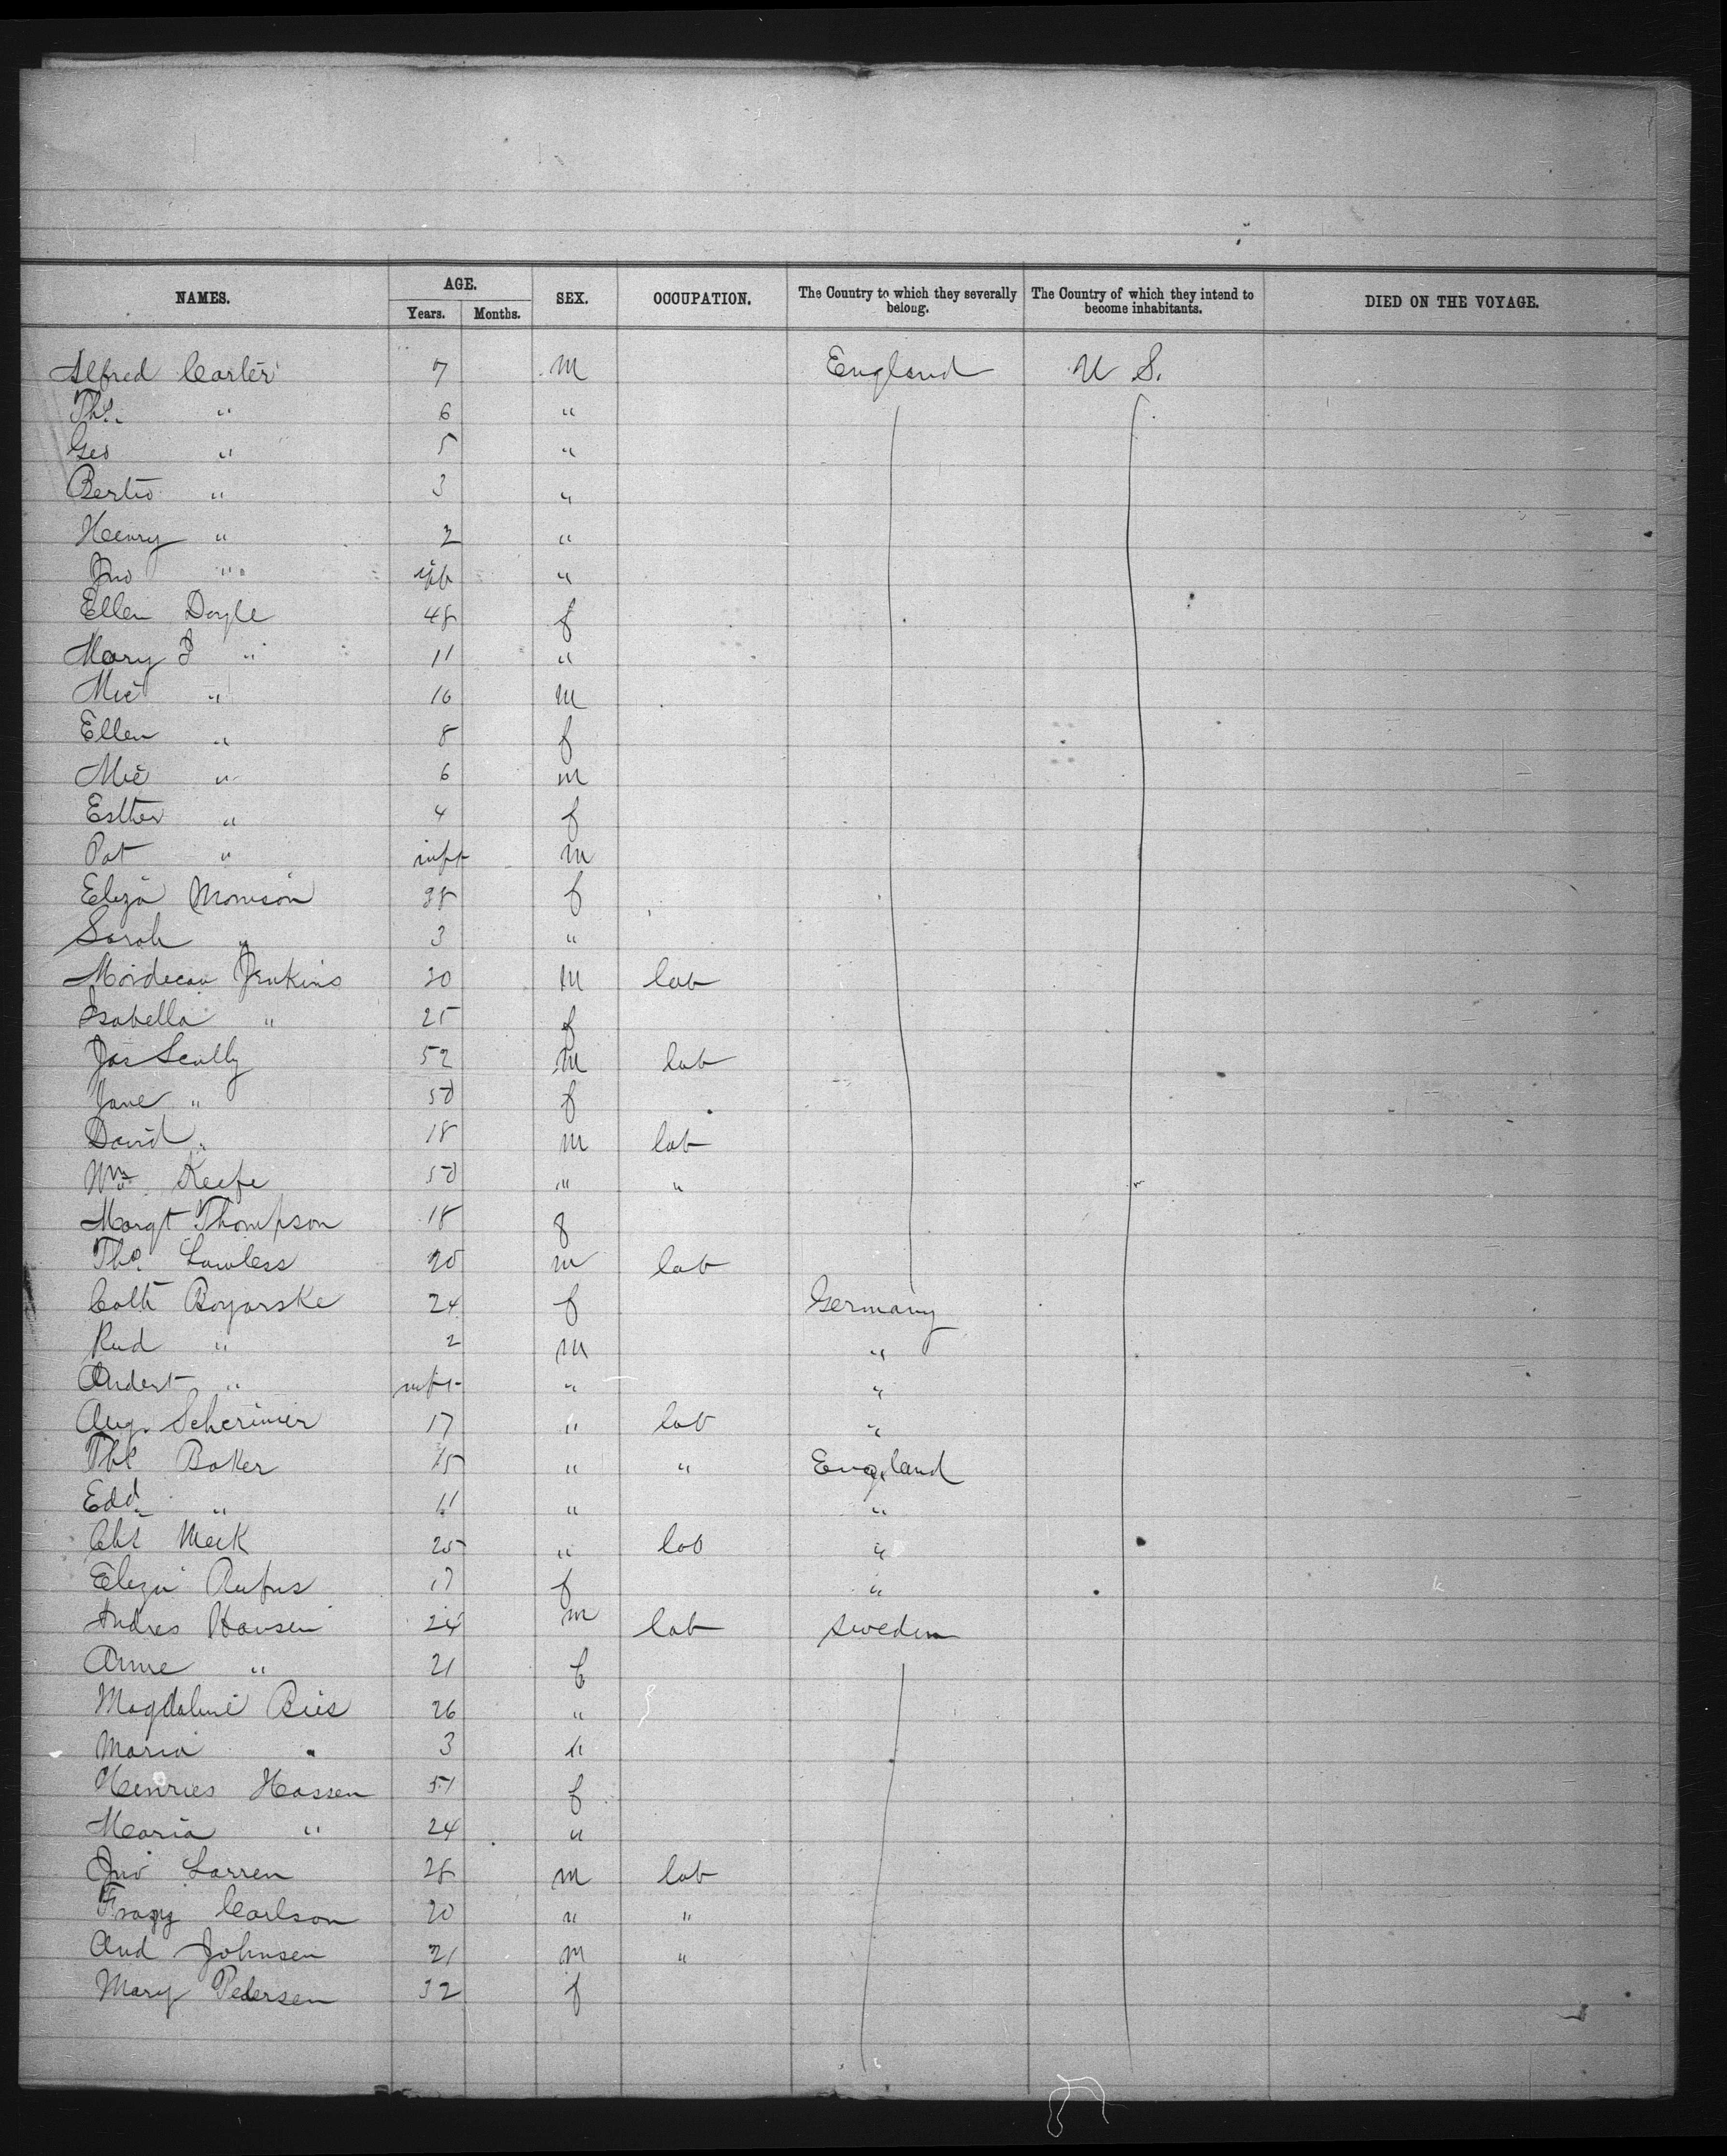 NAMES. AGE. SEX. OCCUPATION. The Country to which they severally belong. The Country of which they intend to become inhabitants. DIED ON THE VOYAGE.
Years. Months.
Alfred Carter 7 m England U S.
Thos. " 6 "
Geo " 5 "
Bertio " 3 "
Henry " 2 "
Jno " "
Ellen Doyle 48 f
Mary J " 11 "
Mic " 10 m
Ellen " 8 f
Mic " 6 m
Esther " 4 f
Pat " inft m
Eliza Morrison 38 f
Sarah " 3 "
Mordecai Jenkins 30 m lab
Isabella " 25 f
Jas Scully 52 m lab
Jane " 50 f
David " 18 m lab
Wm. Keefe 50 " "
Margt Thompson 18 f
Thos. Lawless 20 m lab
Cath Boyarske 24 f Germany
Rud " 2 m "
" inft " "
Aug. Scherimer 17 " lab "
Thos Baker 15 " " England
Edd " 11 " "
Chs Meek 25 " lab "
Eliza Rufus 17 f "
Andres Hansen 24 m lab Sweden
Anne " 21 f
Magdaline Riis 26 "
Maria " 3 "
Henries Hassen 51 f
Maria " 24 "
Jno Larren 28 m lab
Carlson 20 " "
And Johnsen 21 m "
Mary Pedersen 32 f